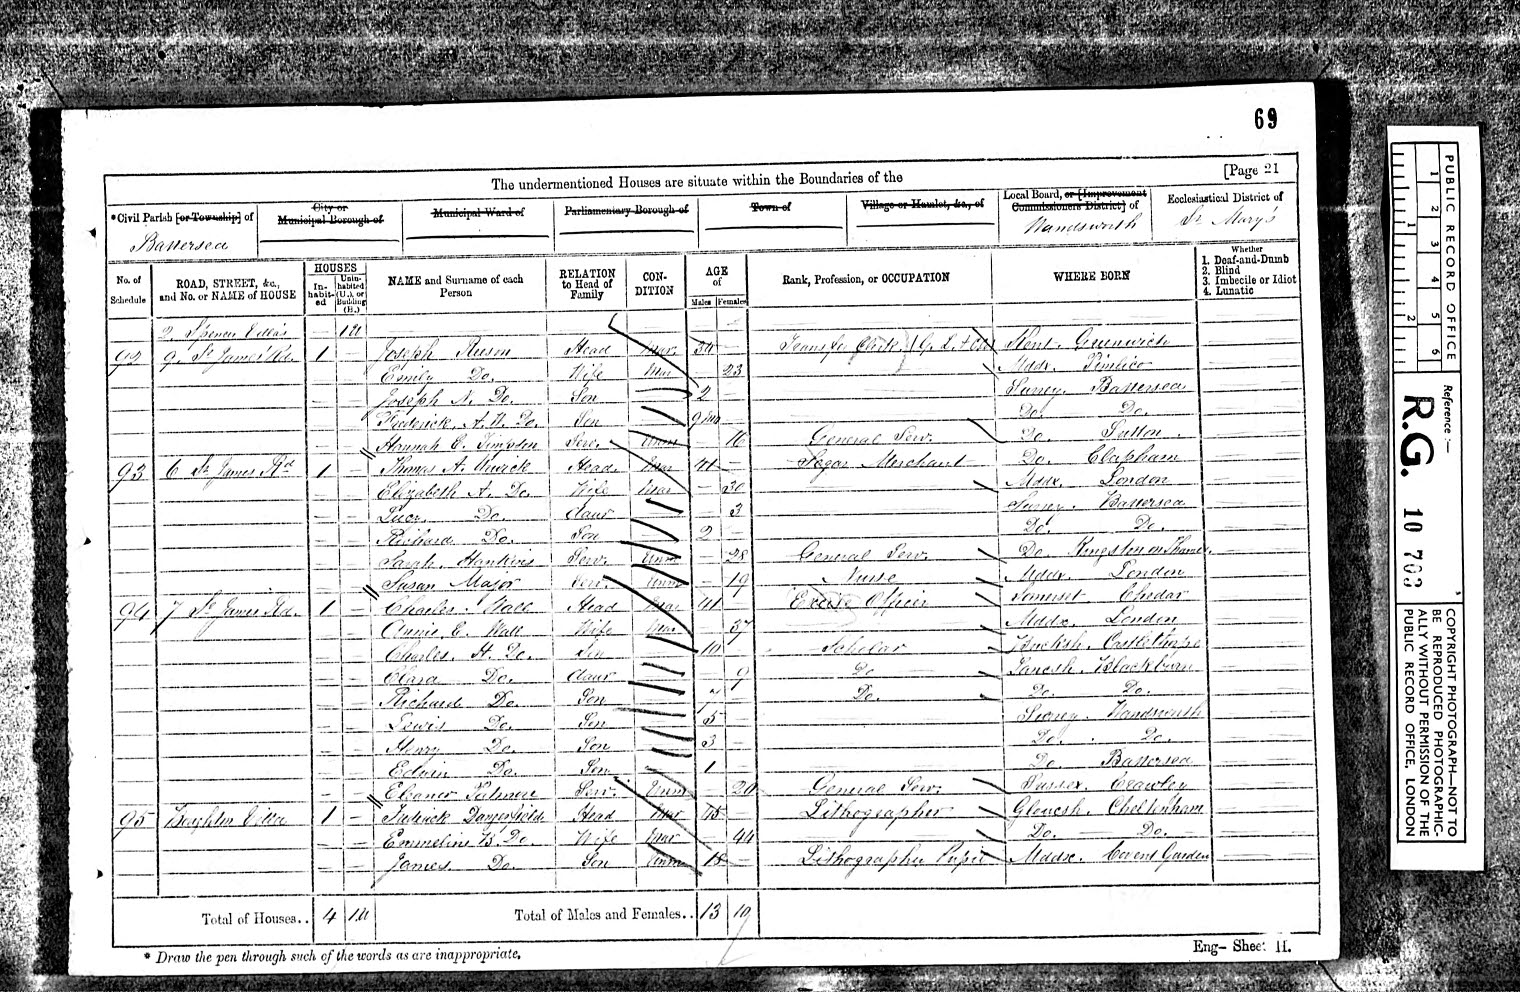 69
[Page 21
The undermentioned Houses are situate within the Boundaries of the
*Civil Parish [or Township] of
City or Municipal Borough of
Municipal Ward of
Parliamentary Borough of
Town of
Village or Hamlet, &c., of
Local Board, or [Improvement Commissioners District] of
Ecclesiastical District of
Battersea
Wandsworth
St Mary's
No. of Schedule
ROAD, STREET, &c., and No. or NAME of HOUSE
HOUSES
In-habit-ed
Unin-habited (U.), or Building (B.)
NAME and Surname of each Person
RELATION to Head of Family
CON-DITION
AGE of
Males
Females
Rank, Profession, or OCCUPATION
WHERE BORN
Whether
1. Deaf-and-Dumb
2. Blind
3. Imbecile or Idiot
4. Lunatic
2. Spencer Villas — 1U
92 9. St James Rd 1 — Joseph Head Mar 34 — Transfer Clerk Kent Greenwich
Emily Do. Wife Mar — 23 Mddx. Pimlico
Joseph N. Do. Son 2 — Surrey Battersea
Frederick A. Do. Son 9/mo — Do. Do.
Hannah E. Simpson Serv. Unm — 16 General Serv. Do. Sutton
93 6 St James Rd 1 — Thomas A. Head Mar 41 — Segar Merchant Do. Clapham
Elizabeth A. Do. Wife Mar — 30 Mddx. London
Lucy Do. daur — 3 Surrey Battersea
Richard Do. Son 2 — Do. Do.
Sarah Hankins Serv. Unm — 28 General Serv. Do. Kingston on Thames
Susan Major Serv. Unm — 19 Nurse Mddx. London
94 7 St James Rd. 1 — Charles Wall Head Mar 41 — Excise Officer Somerset Chedar
Annie E. Wall Wife Mar — 37 Mddx. London
Charles H. Do. Son 10 — Scholar Bucksh. Castlethorpe
Clara Do. daur — 9 Do Lancsh. Blackburn
Richard Do. Son 7 — Do. Do. Do.
Lewis Do. Son 5 Surrey Wandsworth
Henry Do. Son 3 — Do. Do.
Edwin Do. Son 1 Do Battersea
Eleanor Palmer Serv. Unm — 20 General Serv. Sussex Crawley
95 Villa 1 — Fredrick Dangerfield Head Mar 45 — Lithographer Glousesh. Cheltenham
Emmeline B. Do. Wife Mar 44 Do. Do.
James Do. Son Unm 18 — Lithographer Pupil Mddx. Covent Garden
Total of Houses.. 4 1U Total of Males and Females.. 13 10
* Draw the pen through such of the words as are inappropriate.
Eng- Sheet H.
PUBLIC RECORD OFFICE
1 2 3 4 5 6
1 2
Reference :-
R.G. 10 703
COPYRIGHT PHOTOGRAPH—NOT TO BE REPRODUCED PHOTOGRAPHIC-ALLY WITHOUT PERMISSION OF THE PUBLIC RECORD OFFICE, LONDON